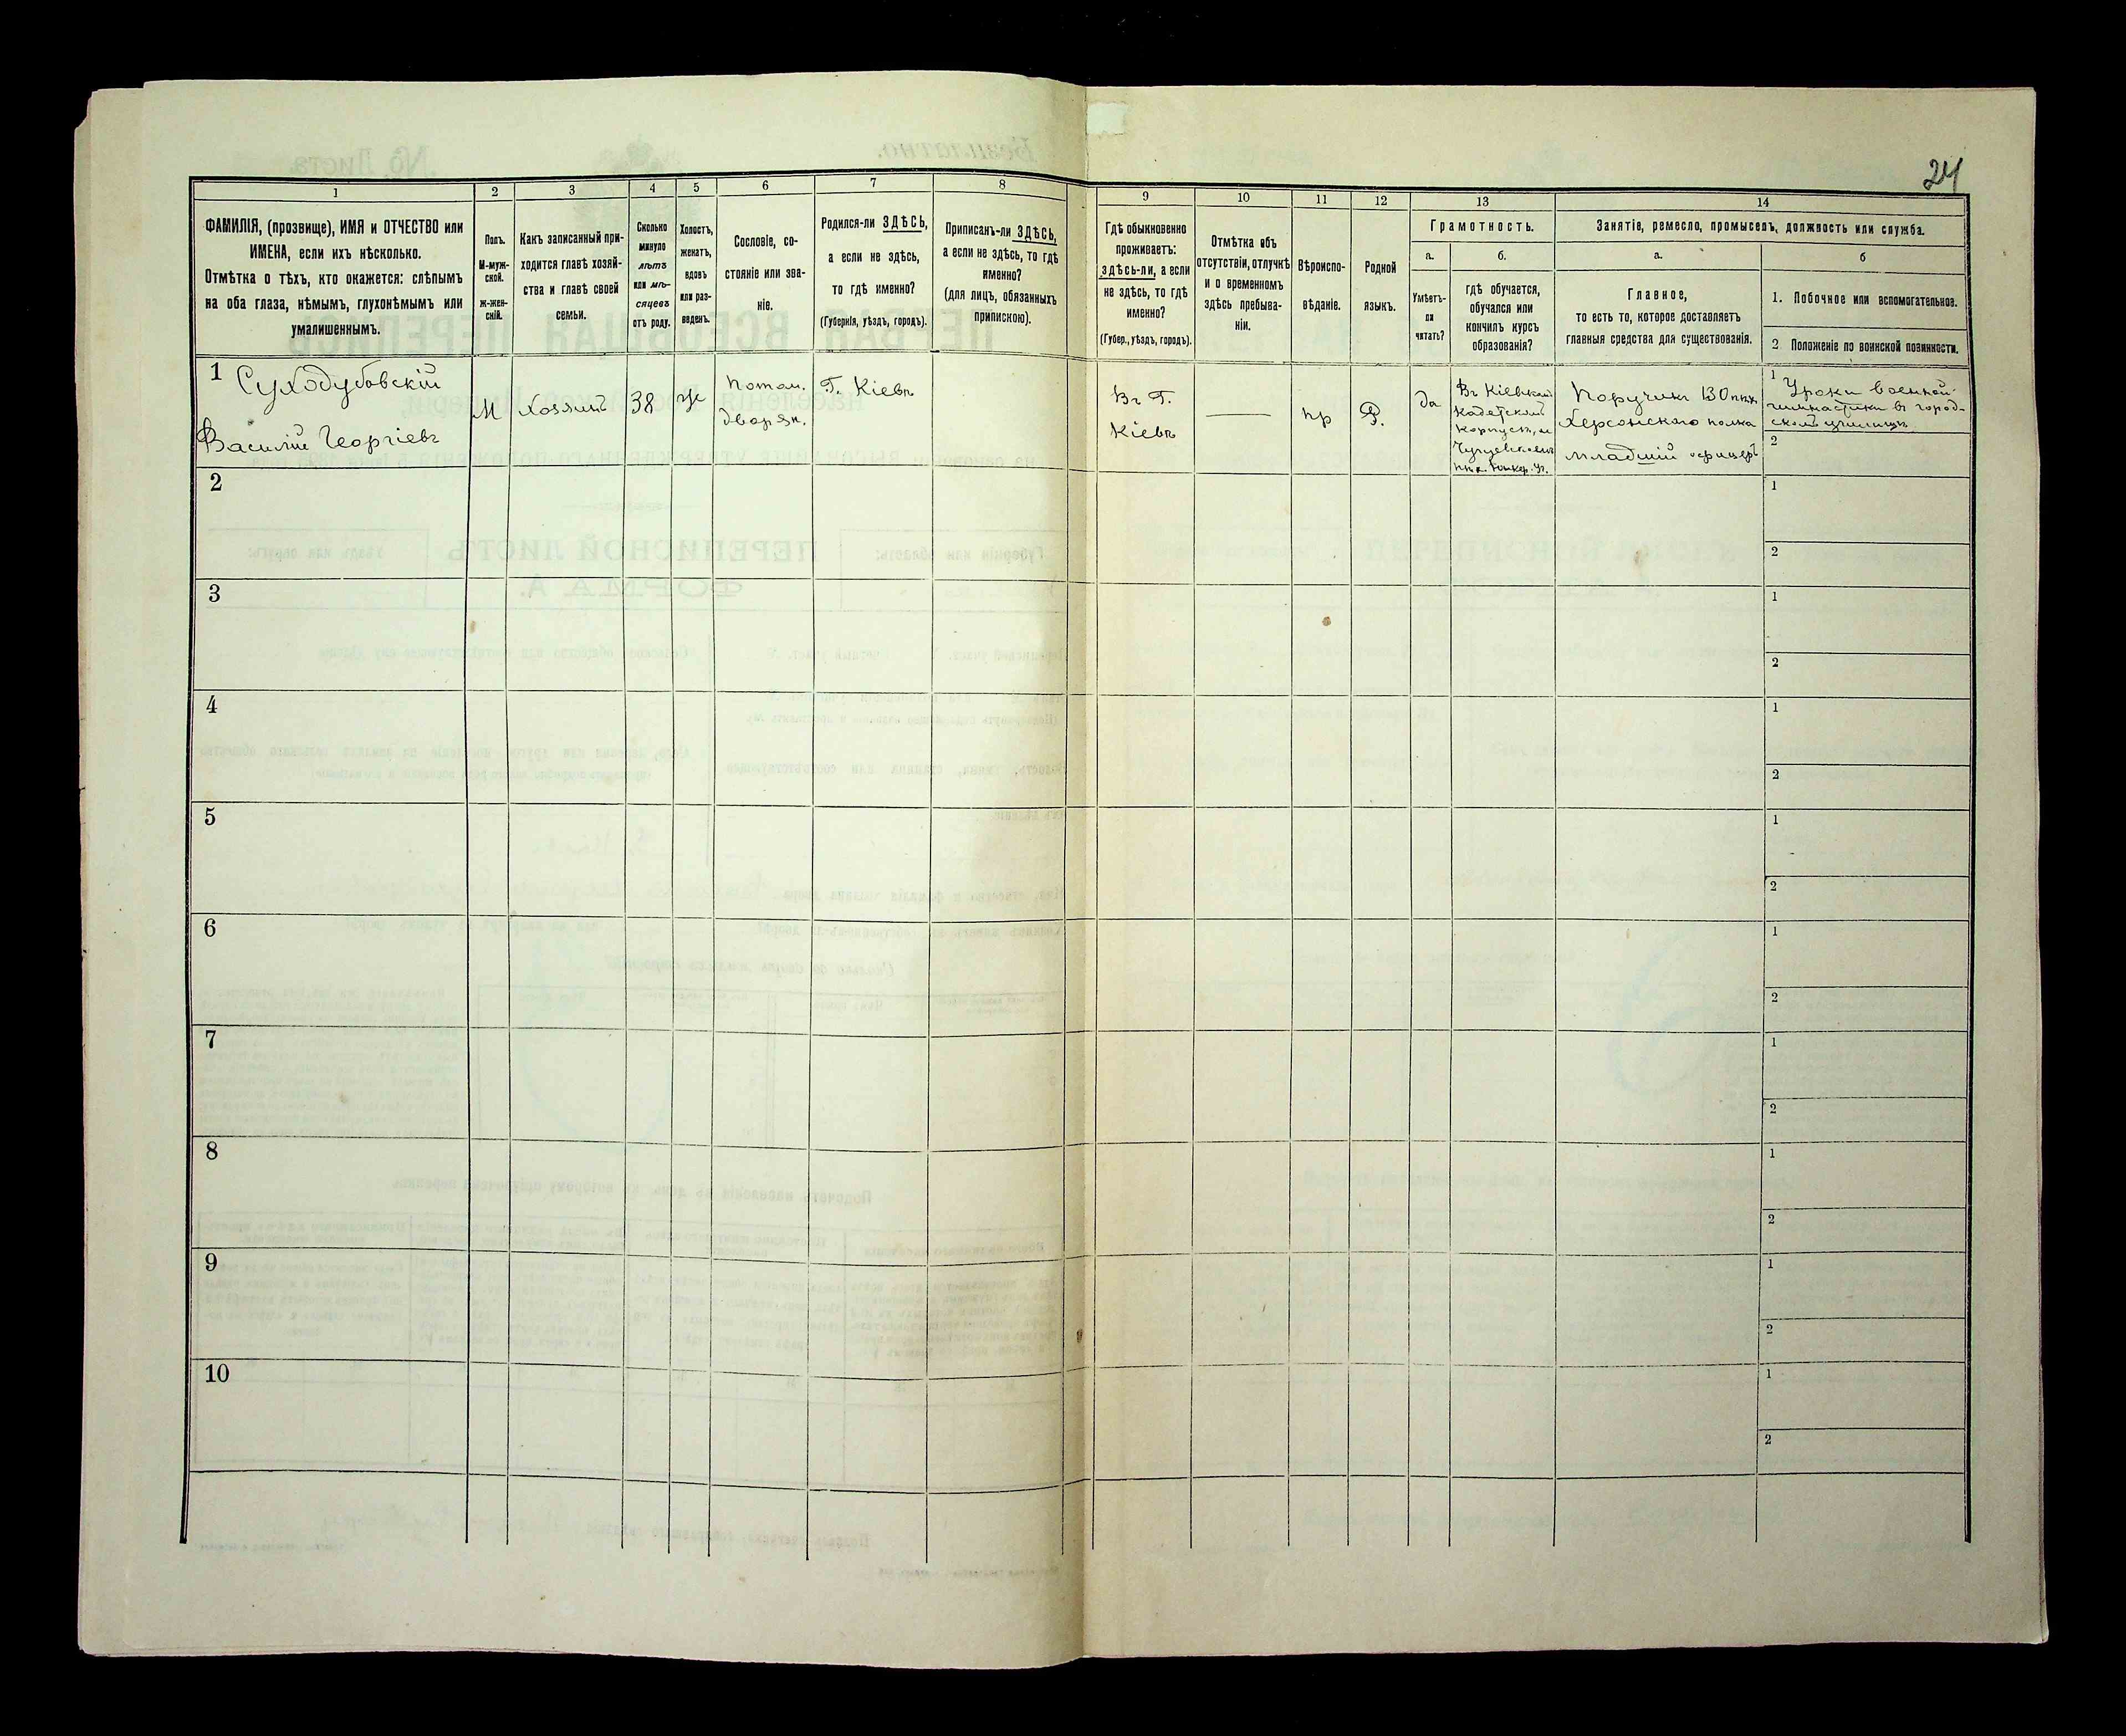 24
1
2
3
4
5
6
7
8
9
10
11
12
13
14
ФАМИЛІЯ, (прозвище), ИМЯ и ОТЧЕСТВО или
ИМЕНА, если ихъ нѣсколько.
Отмѣтка о тѣхъ, кто окажется: слѣпымъ
на оба глаза, нѣмымъ, глухонѣмымъ или
умалишеннымъ.
Полъ.
М-муж-
ской.
ж-жен-
скій.
Какъ записанный при-
ходится главѣ хозяй-
ства и главѣ своей
семьи.
Сколько
минуло
лѣтъ
или мѣ-
сяцевъ
отъ роду.
Холостъ,
женатъ,
вдовъ
или раз-
веденъ.
Сословіе, со-
стояніе или зва-
ніе.
Родился-ли ЗДѢСЬ,
а если не здѣсь,
то гдѣ именно?
(Губернія, уѣздъ, городъ).
Приписанъ-ли ЗДѢСЬ,
а если не здѣсь, то гдѣ
именно?
(для лицъ, обязанныхъ
припискою).
Гдѣ обыкновенно
проживаетъ:
здѣсь-ли, а если
не здѣсь, то гдѣ
именно?
(Губер., уѣздъ, городъ).
Отмѣтка объ
отсутствіи, отлучкѣ
и о временномъ
здѣсь пребыва-
ніи.
Вѣроиспо-
вѣданіе.
Родной
языкъ.
Грамотность.
а.
Умѣетъ-
ли
читать?
б.
гдѣ обучается,
обучался или
кончилъ курсъ
образованія?
Занятіе, ремесло, промыселъ, должность или служба.
а.
Главное,
то есть то, которое доставляетъ
главныя средства для существованія.
б
1. Побочное или вспомогательное.
2 Положеніе по воинской повинности.
1 Суходубовскій
Василій Георгіевъ
М
Хозяинъ
38
ж
потом.
дворян.
Г. Кіевъ
Въ Г.
Кіевъ
—
пр
Р.
да
Въ Кіевском
Кадетский
Корпусъ, и
Чугуевском
пѣх. Юнкер. Уч.
Поручикъ 130 пѣх.
Херсонского полка
младшій офицеръ
1 Уроки военной
гимнастики въ город-
скомъ училищѣ
2
2
1
2
3
1
2
4
1
2
5
1
2
6
1
2
7
1
2
8
1
2
9
1
2
10
1
2